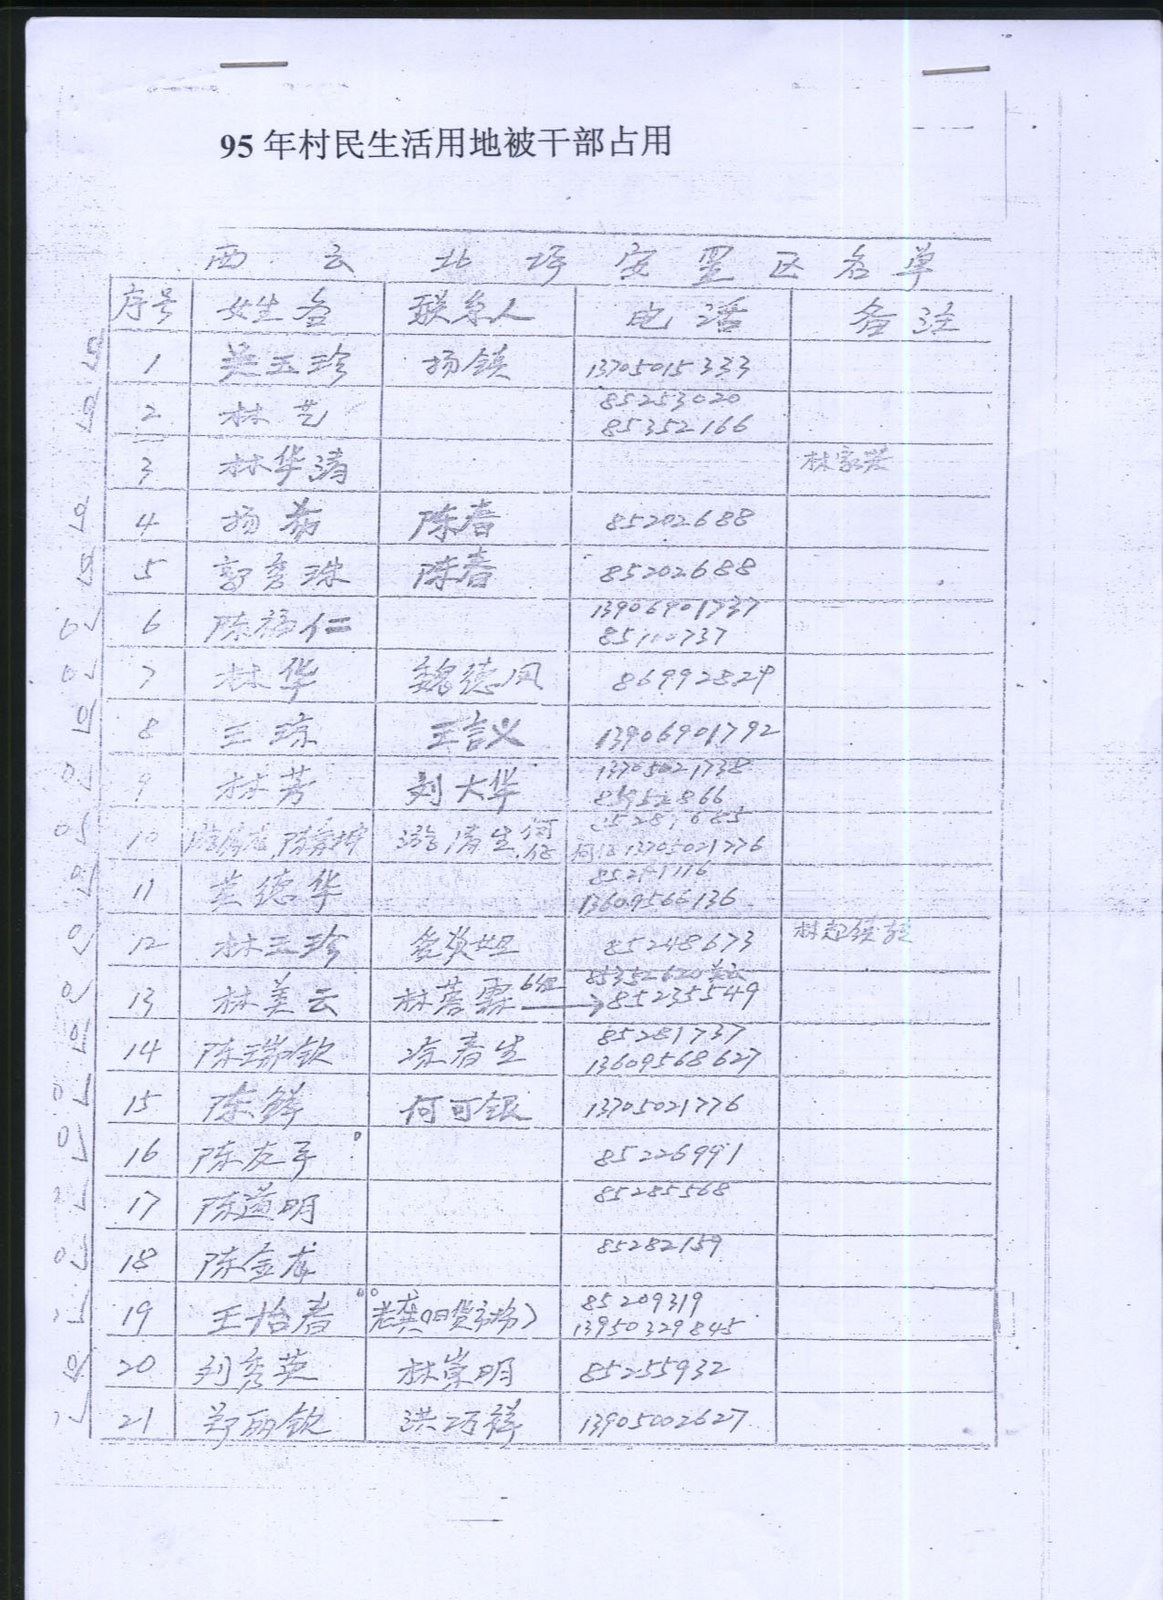 95 年村民生活用地被干部占用
西云北坪安置区名单
序号 姓名 联系人 电话 备注
1 吴玉珍 扬镇 13705015333
2 林艺 85253020
85352166
3 林华清 林家
4 扬 陈春 85202688
5 郭秀珠 陈春 85202688
6 陈福仁 13906901737
737
7 林华 魏德凤 86992829
8 王琼 王言义 13906901792
9 林芳 刘大华 13705021738
866
10 清生 何 13705021776
11 德华 13609566136
12 林玉珍 85248673 林
13 林美云 林 85352620
→85235549
14 陈瑞钦 春生 85281737
13609568627
15 陈锋 何可银 13705021776
16 陈友 85226991
17 陈道明 85285568
18 陈金 85282159
19 王怡春 老龚(旧货市场) 85209319
13950329845
20 刘秀英 林崇明 85255932
21 郑丽钦 洪巧祥 13905002627